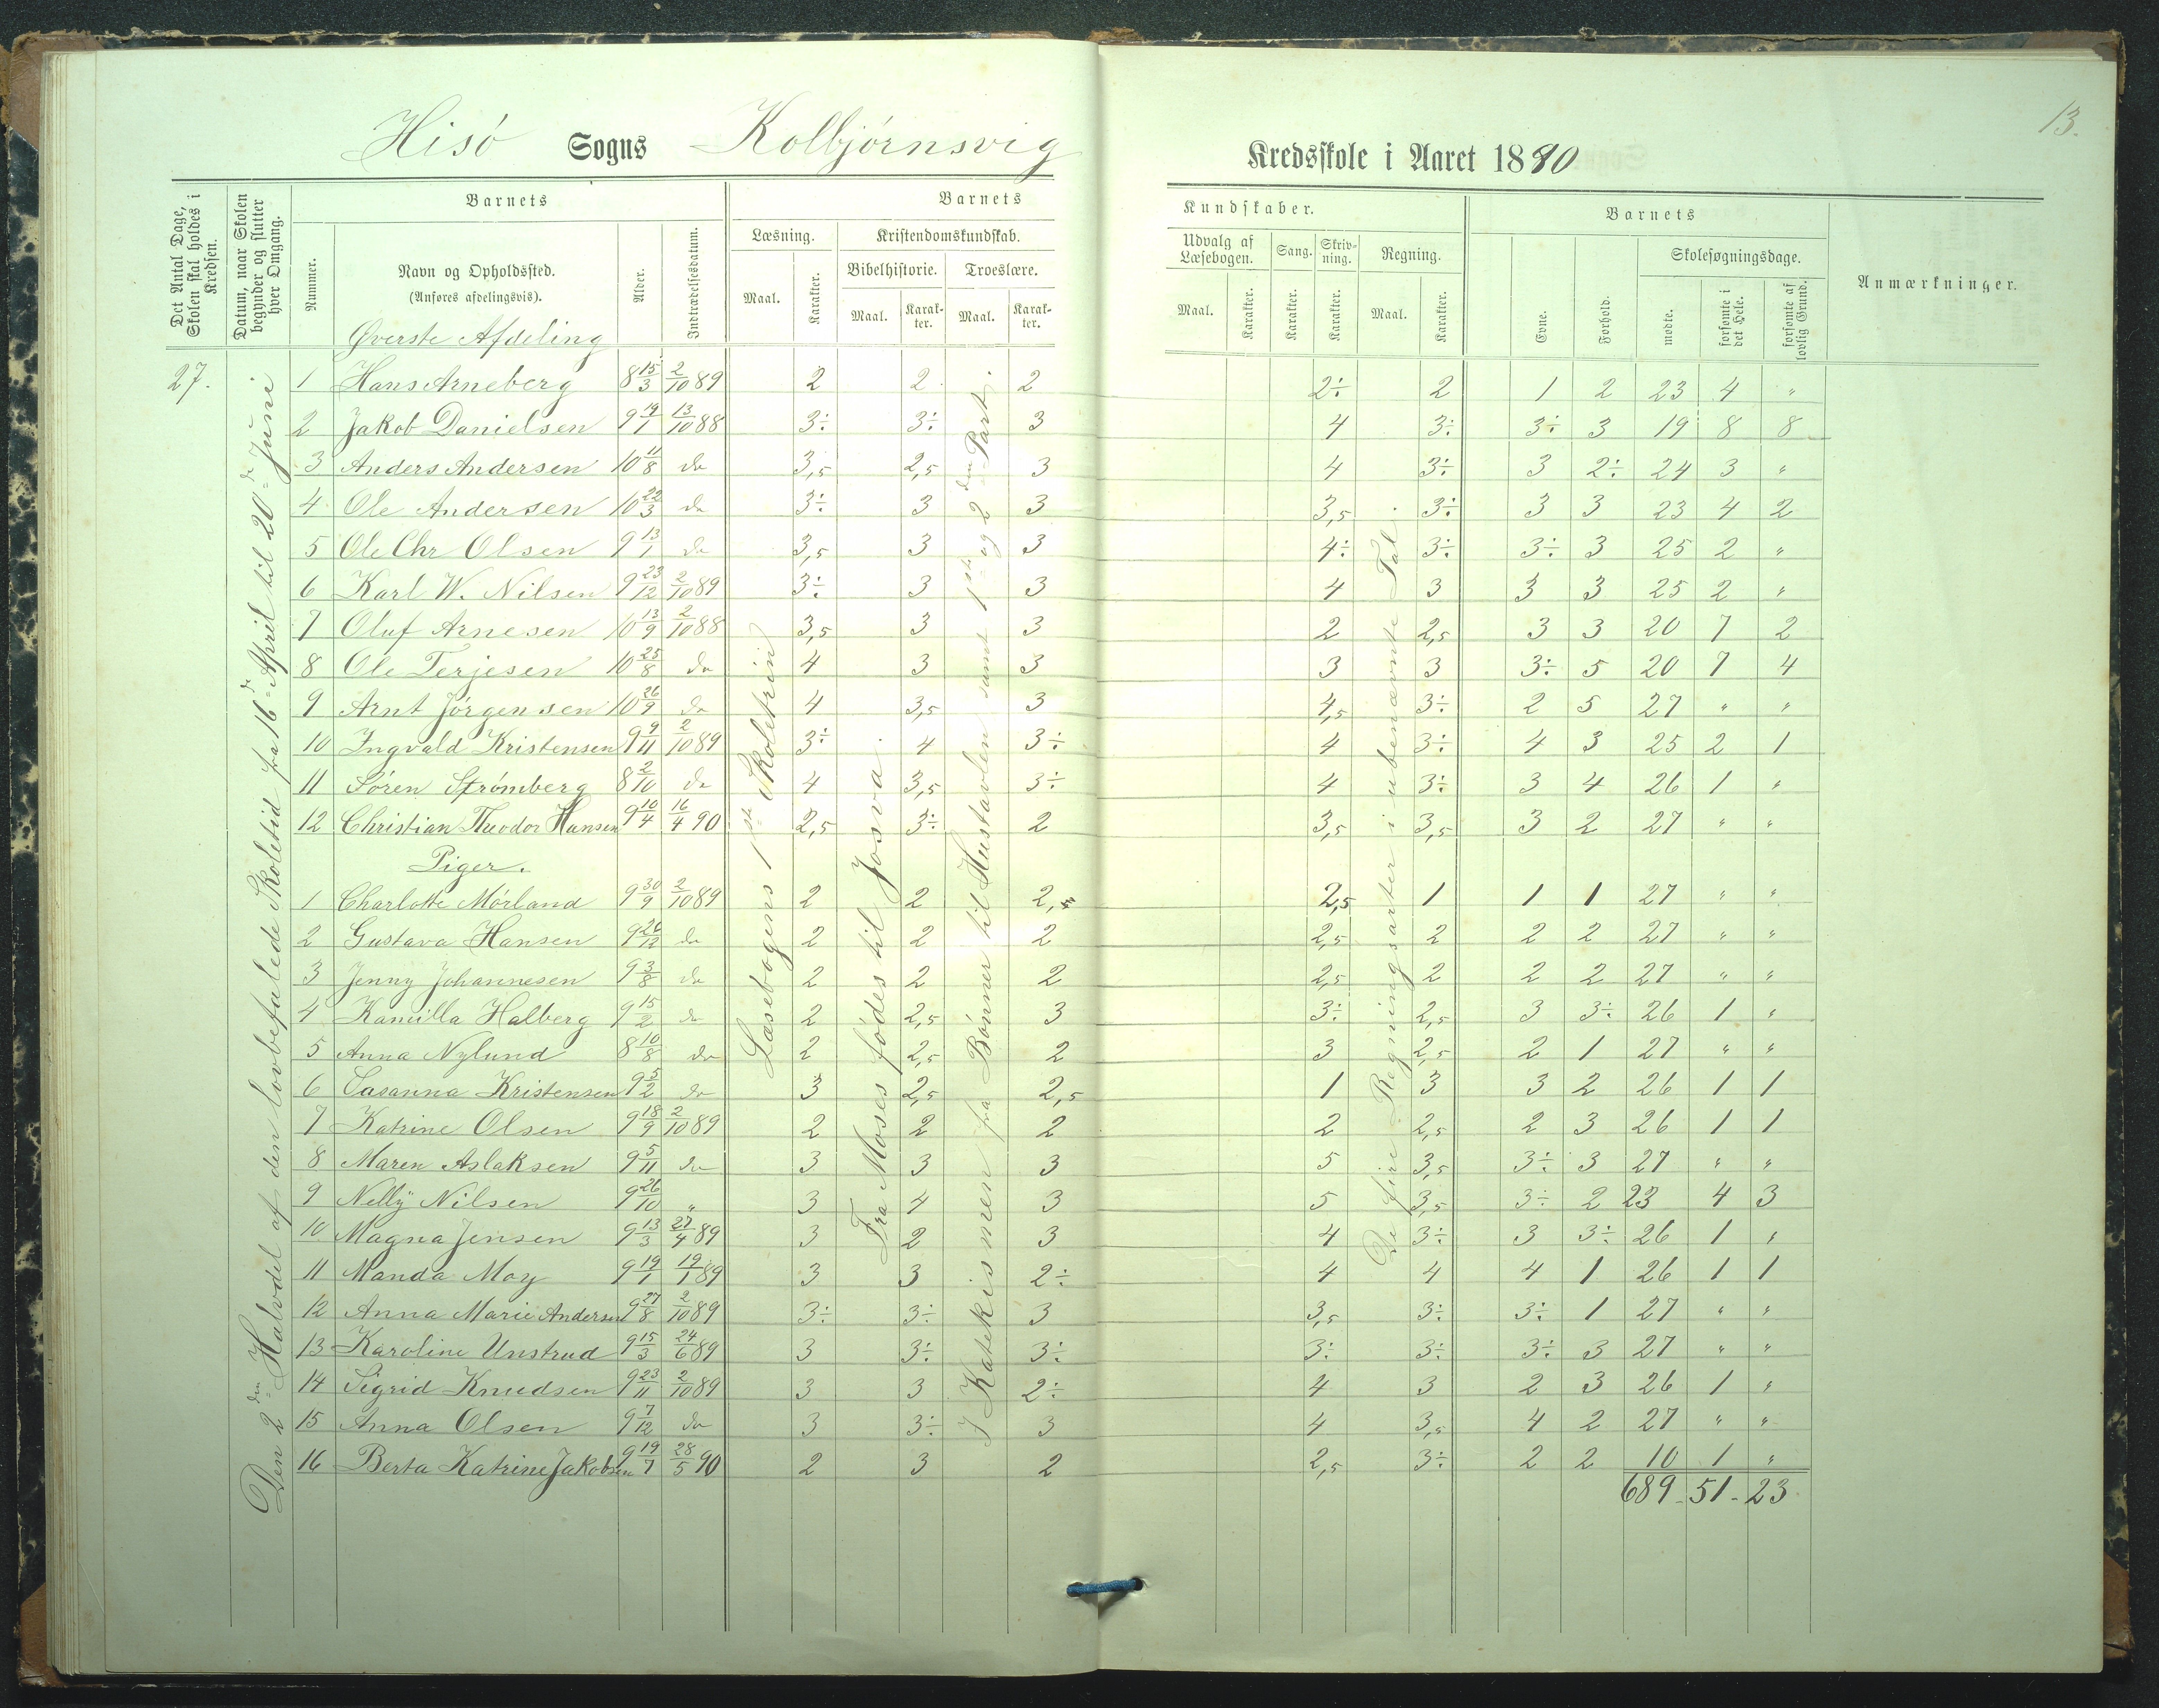 13.
Hisö Sogns Kolbjörnsvig Kredsskole i Aaret 1890
Det Antal Dage, Skolen skal holdes i Kredsen.
Datum, naar Skolen begynder og slutter hver Omgang.
Barnets
Nummer.
Navn og Opholdssted.
(Anføres afdelingsvis).
Alder.
Indtrædelsesdatum.
Barnets Kundskaber.
Læsning.
Maal.
Karakter.
Kristendomskundskab.
Bibelhistorie.
Maal.
Karakter.
Troeslære.
Maal.
Karakter.
Udvalg af Læsebogen.
Maal.
Karakter.
Sang.
Karakter.
Skrivning.
Karakter.
Regning.
Maal.
Karakter.
Barnets
Evne.
Forhold.
Skolesøgningsdage.
mødte.
forsømte i det Hele.
forsømte af lovlig Grund.
Anmærkninger.
27.
Den 2den Halvdel af den lovbefalede Skoletid fra 16de April til 20de Juni
Læsebogens 1ste Skoletrin
Fra Moses fødes til Josva.
I Katekismen fra Bønner til Hustavlen samt 1ste og 2den Part.
De fire Regningsarter i ubenævnte Tal.
Øverste Afdeling
1 Hans Arneberg 8 15/3 2/10 89 2 2 2 2÷ 2 1 2 23 4 "
2 Jakob Danielsen 9 19/1 13/10 88 3÷ 3÷ 3 4 3÷ 3÷ 3 19 8 8
3 Anders Andersen 10 11/8 do 3,5 2,5 3 4 3÷ 3 2÷ 24 3 "
4 Ole Andersen 10 22/3 do 3÷ 3 3 3,5 3÷ 3 3 23 4 2
5 Ole Chr Olsen 9 13/1 do 3,5 3 3 4÷ 3÷ 3÷ 3 25 2 "
6 Karl W. Nilsen 9 23/12 2/10 89 3÷ 3 3 4 3 3 3 25 2 "
7 Oluf Arnesen 10 13/9 2/10 88 3,5 3 3 2 2,5 3 3 20 7 2
8 Ole Terjesen 10 25/8 do 4 3 3 3 3 3÷ 5 20 7 4
9 Arnt Jörgensen 10 26/9 do 4 3,5 3 4,5 3÷ 2 5 27 " "
10 Ingvald Kristensen 9 9/11 2/10 89 3÷ 4 3÷ 4 3÷ 4 3 25 2 1
11 Sören Strömberg 8 2/10 do 4 3,5 3÷ 4 3÷ 3 4 26 1 "
12 Christian Theodor Hansen 9 10/4 16/4 90 2,5 3÷ 2 3,5 3,5 3 2 27 " "
Piger.
1 Charlotte Mörland 9 30/9 2/10 89 2 2 2,5 2,5 1 1 1 27 " "
2 Gustava Hansen 9 26/12 do 2 2 2 2,5 2 2 2 27 " "
3 Jenny Johannesen 9 3/8 do 2 2 2 2,5 2 2 2 27 " "
4 Kamilla Halberg 9 15/2 do 2 2,5 3 3÷ 2,5 3 3÷ 26 1 "
5 Anna Nylund 8 10/8 do 2 2,5 2 3 2,5 2 1 27 " "
6 Sasanna Kristensen 9 5/2 do 3 2,5 2,5 1 3 3 2 26 1 1
7 Katrine Olsen 9 18/9 2/10 89 2 2 2 2 2,5 2 3 26 1 1
8 Maren Aslaksen 9 5/11 do 3 3 3 5 3,5 3÷ 3 27 " "
9 Nelly Nilsen 9 26/10 " 3 4 3 5 3,5 3÷ 2 23 4 3
10 Magna Jensen 9 13/3 27/4 89 3 2 3 4 3÷ 3 3÷ 26 1 "
11 Manda Moy 9 19/1 19/1 89 3 3 2÷ 4 4 4 1 26 1 1
12 Anna Marie Andersen 9 27/8 2/10 89 3÷ 3÷ 3 3,5 3÷ 3÷ 1 27 " "
13 Karoline Unstrud 9 15/3 24/6 89 3 3÷ 3÷ 3÷ 3÷ 3÷ 3 27 " "
14 Sigrid Knudsen 9 23/11 2/10 89 3 3 2÷ 4 3 2 3 26 1 "
15 Anna Olsen 9 7/12 do 3 3÷ 3 4 3,5 4 2 27 " "
16 Berta Katrine Jakobsen 9 19/7 28/5 90 2 3 2 2,5 3÷ 2 2 10 1 "
689 - 51 - 23